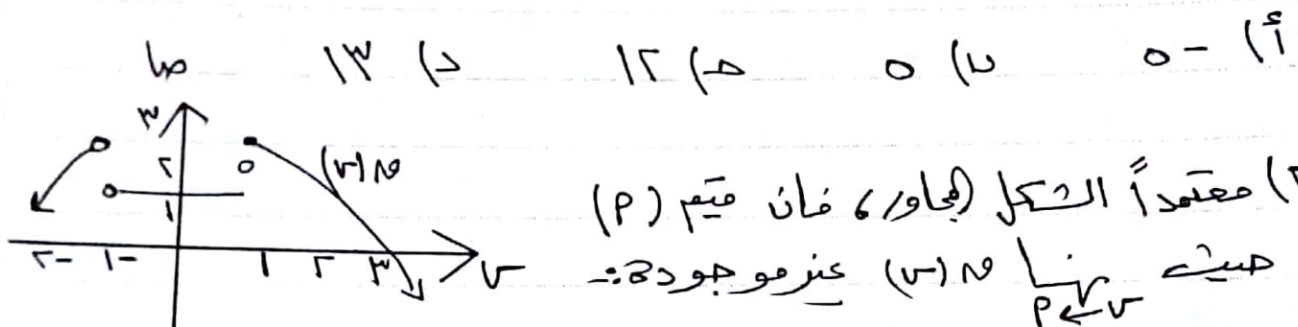 أ) -٥ ب) ٥ ج) ١٢ د) ١٣
٢) معتمداً الشكل المجاور، فان قيم (P)
حيث نها ن(س) غير موجودة:-
س←P
صا
٣
٢
١
ن(س)
-٢ -١ ١ ٢ ٣ س